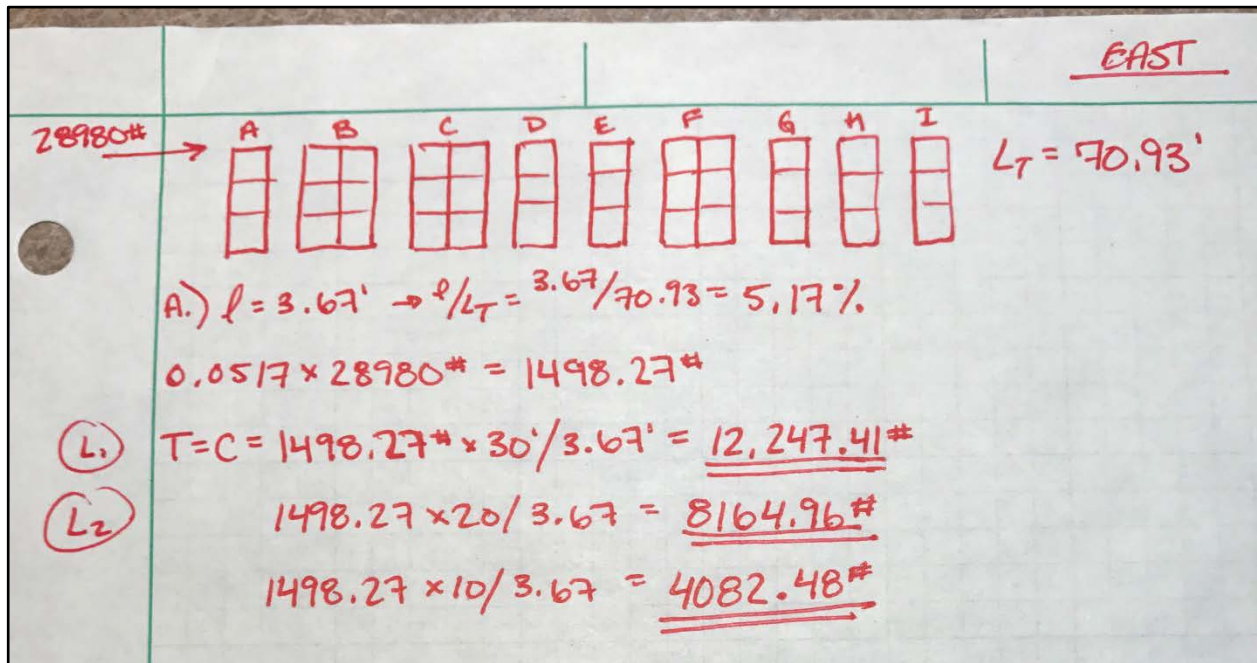 EAST
28980# A B C D E F G H I
L_T = 70.93'
A.) l = 3.67' → l/L_T = 3.67/70.93 = 5.17%
0.0517 × 28980# = 1498.27#
L1 T=C= 1498.27# × 30'/3.67' = 12,247.41#
L2 1498.27 ×20/3.67 = 8164.96#
1498.27 ×10/3.67 = 4082.48#